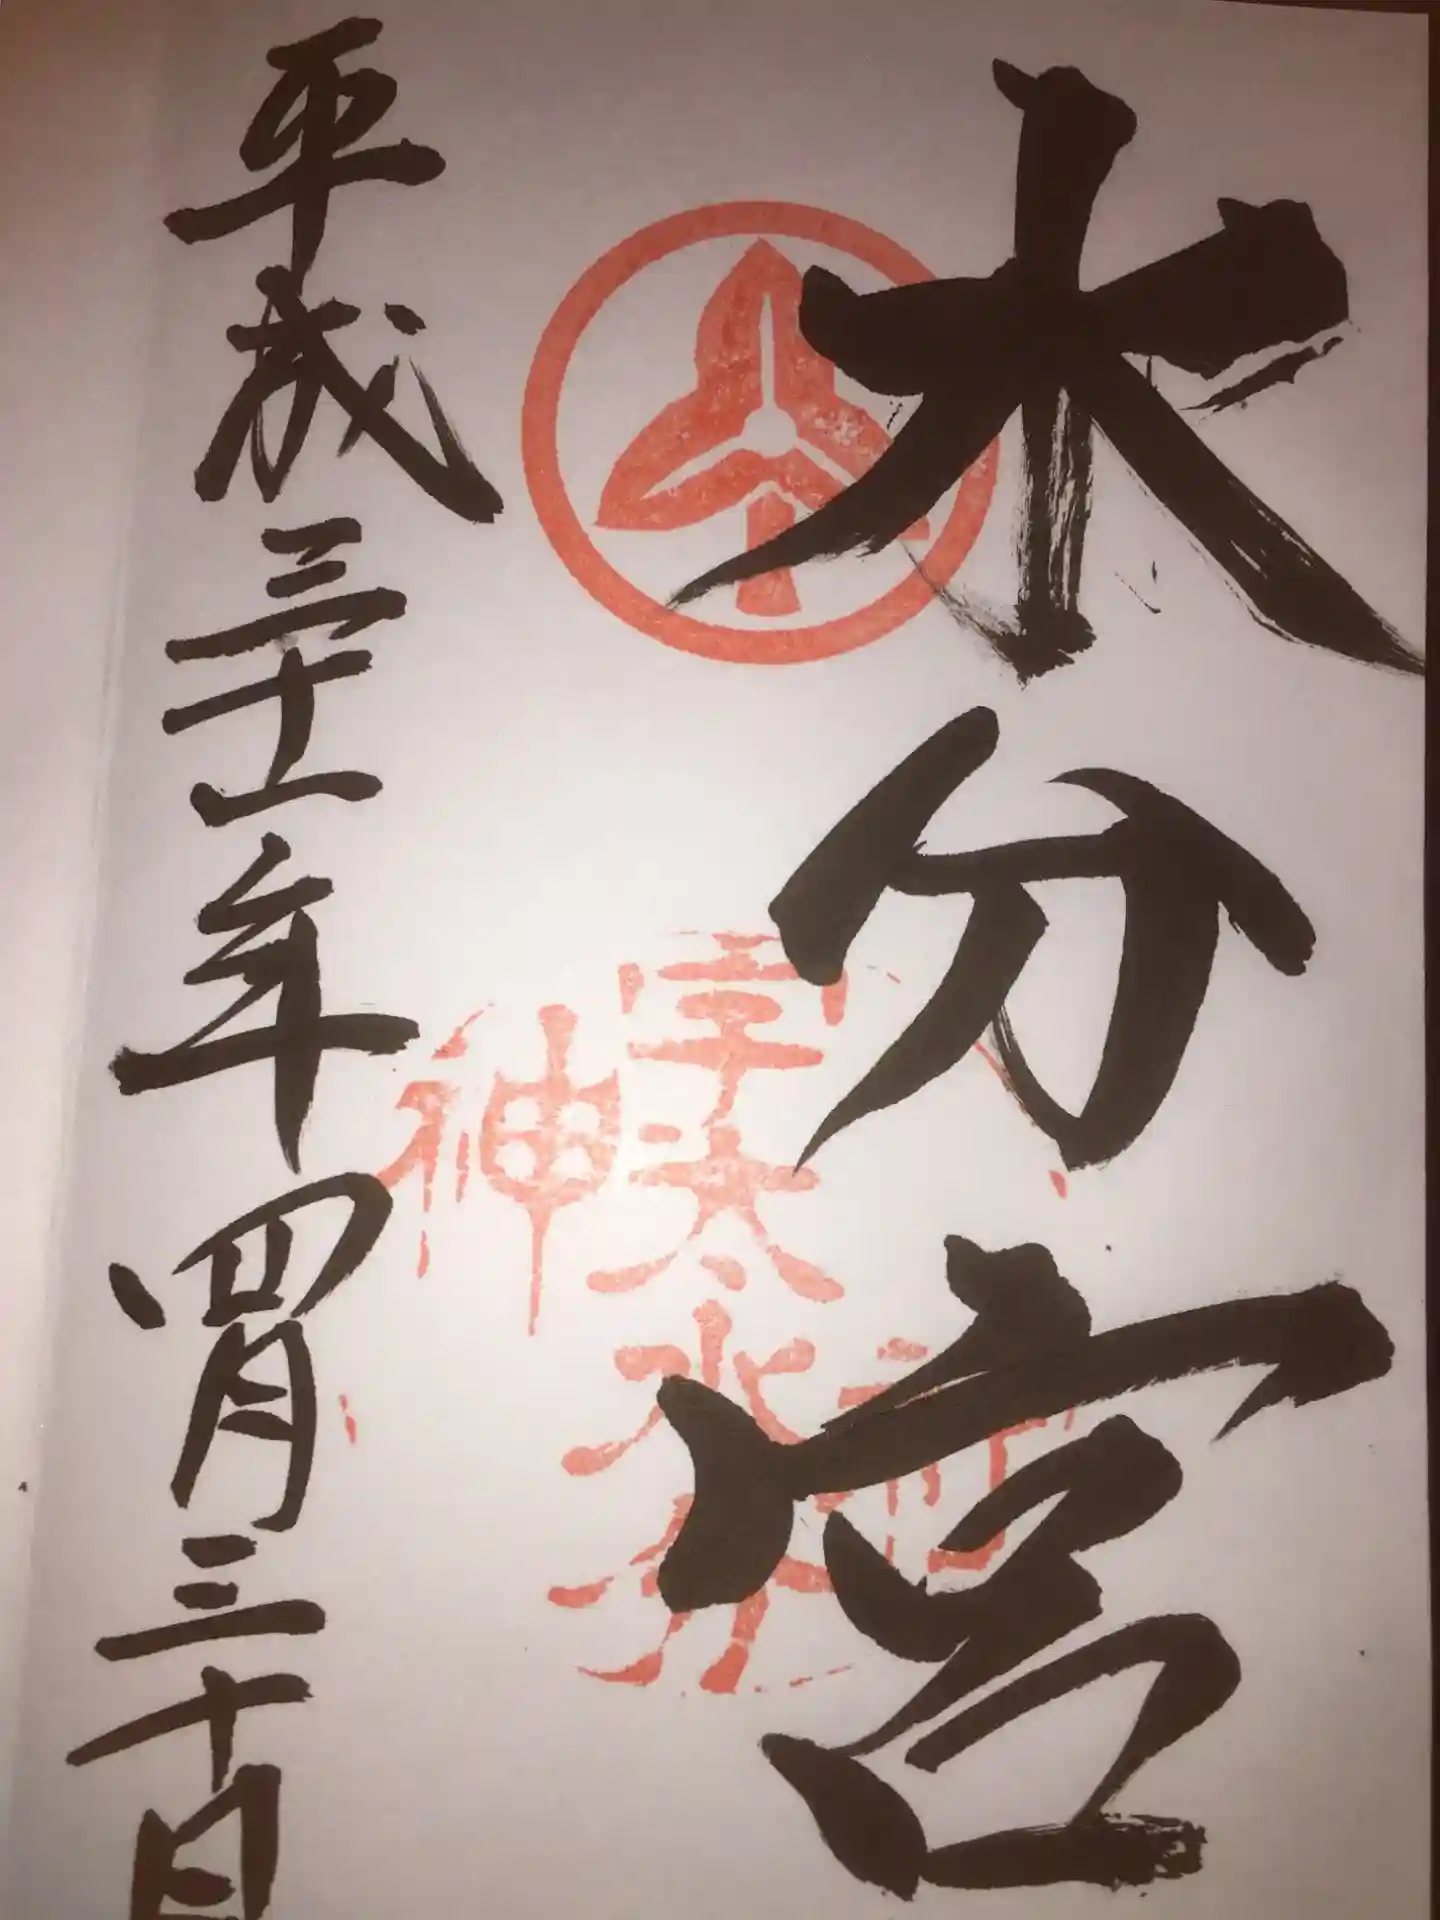 水分宮
宇太水分
神
平成三十一年四月三十日